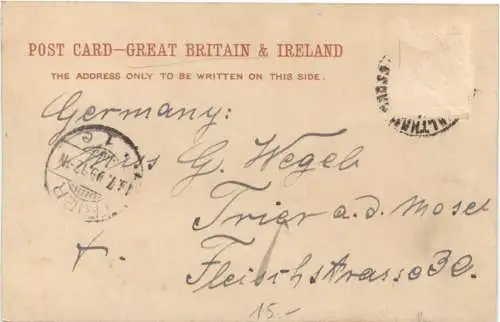 POST CARD—GREAT BRITAIN & IRELAND
THE ADDRESS ONLY TO BE WRITTEN ON THIS SIDE.
Germany:
Miss G. Wegeb
Trier a.d. Mosel
Fleischstrasse 32.
15.-
TRIER
WALTHAM